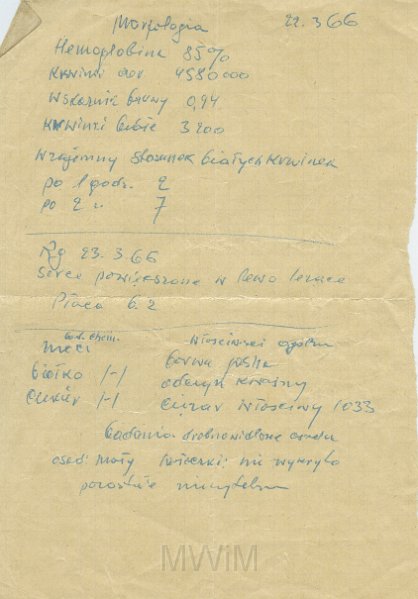 Morfologia 22.3 66
Hemoglobina 85%
Krwinki czer 4580000
Wskaźnik barwy 0,94
Krwinki białe 3200
Wzajemny stosunek białych krwinek
po 1 godz. 2
po 2 " 7
Rg 23.3 66
Serce powiększone w lewo leżące
Płuca b.z
bad. chem. Właściwości ogólne
mocz barwa jasna
białko /-/ odczyn kwaśny
cukier /-/ ciężar właściwy 1033
badania drobnowidzowe
osad mały nie wykryto
MWiM